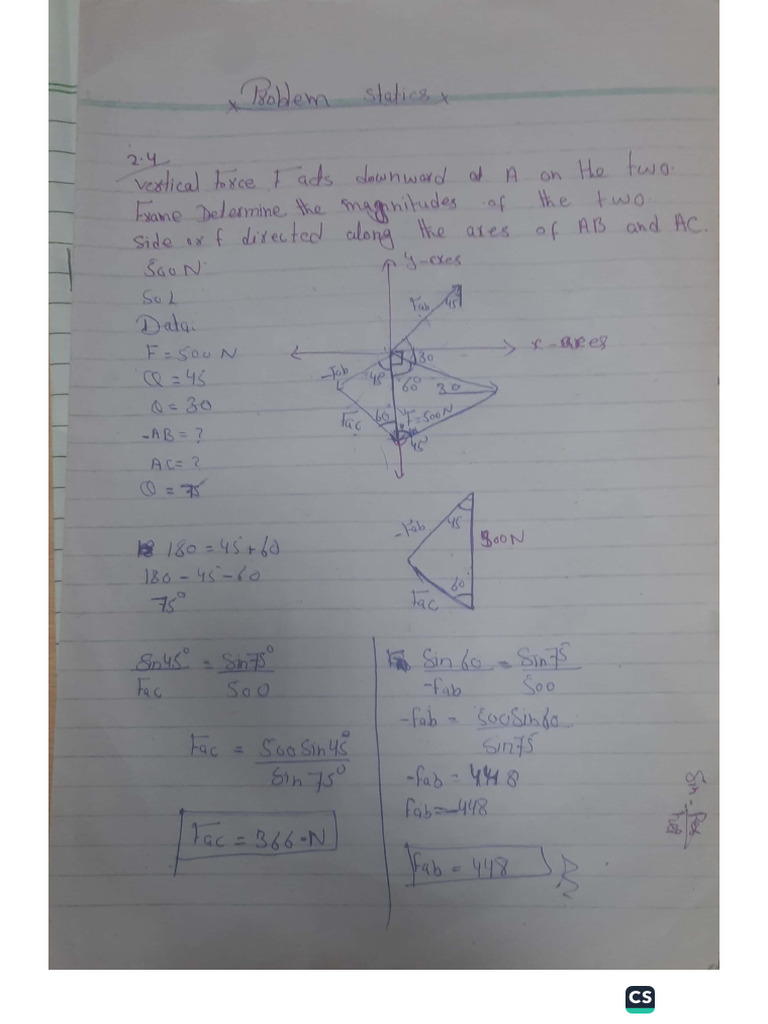 x Problem statics x
2.4
Vertical Force F acts downward at A on the two
Frame Determine the magnitudes of the two
side or f directed along the axes of AB and AC.
500 N
Sol
Data.
F = 500 N
Q = 45
Q = 30
-AB = ?
AC = ?
Q = 75
y-exes
Fab
45
x-axes
30
-Fab
45
60°
30
Fac
60
F=500N
45°
180 = 45 + 60
180 - 45 - 60
75°
-Fab
45
500N
60
Fac
Sin45° = Sin75°
Fac 500
Fac = 500 Sin 45°
Sin 75°
Fac = 366 N
Sin 60 = Sin 75
-Fab 500
-Fab = 500 Sin 60
Sin 75
-Fab = 448
Fab = -448
Fab = 448
Sin =
CS